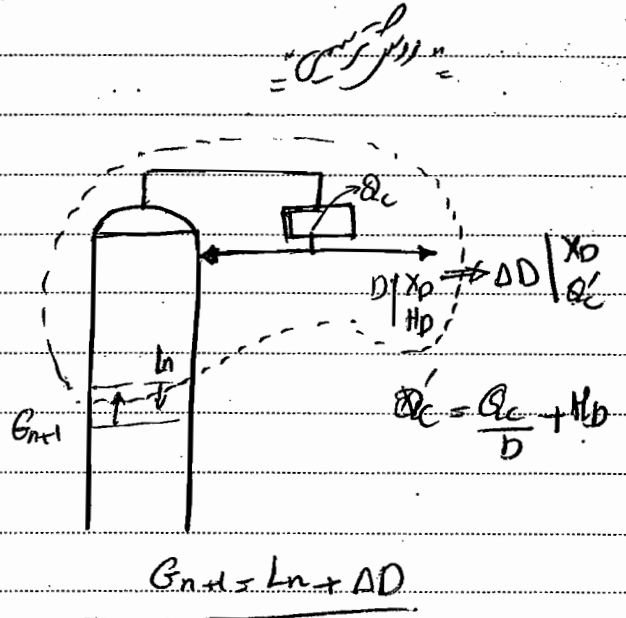 Q_c
D | X_D
H_D
⇒ ΔD | X_D
Q'_c
L_n
G_{n+1}
Q'_c = Q_c / D + H_D
G_{n+1} = L_n + ΔD